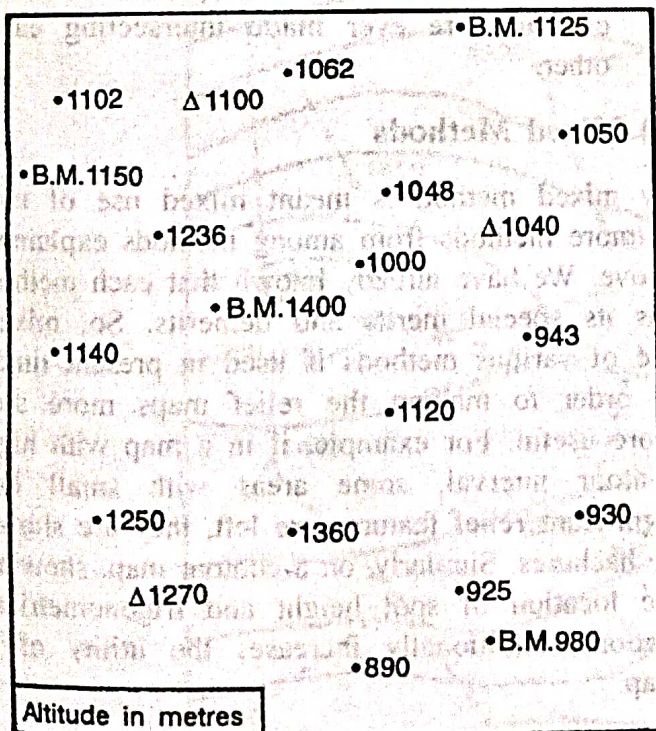 •B.M. 1125
•1062
•1102
Δ1100
•1050
•B.M.1150
•1048
•1236
Δ1040
•1000
•B.M.1400
•943
•1140
•1120
•1250
•1360
•930
Δ1270
•925
•B.M.980
•890
Altitude in metres